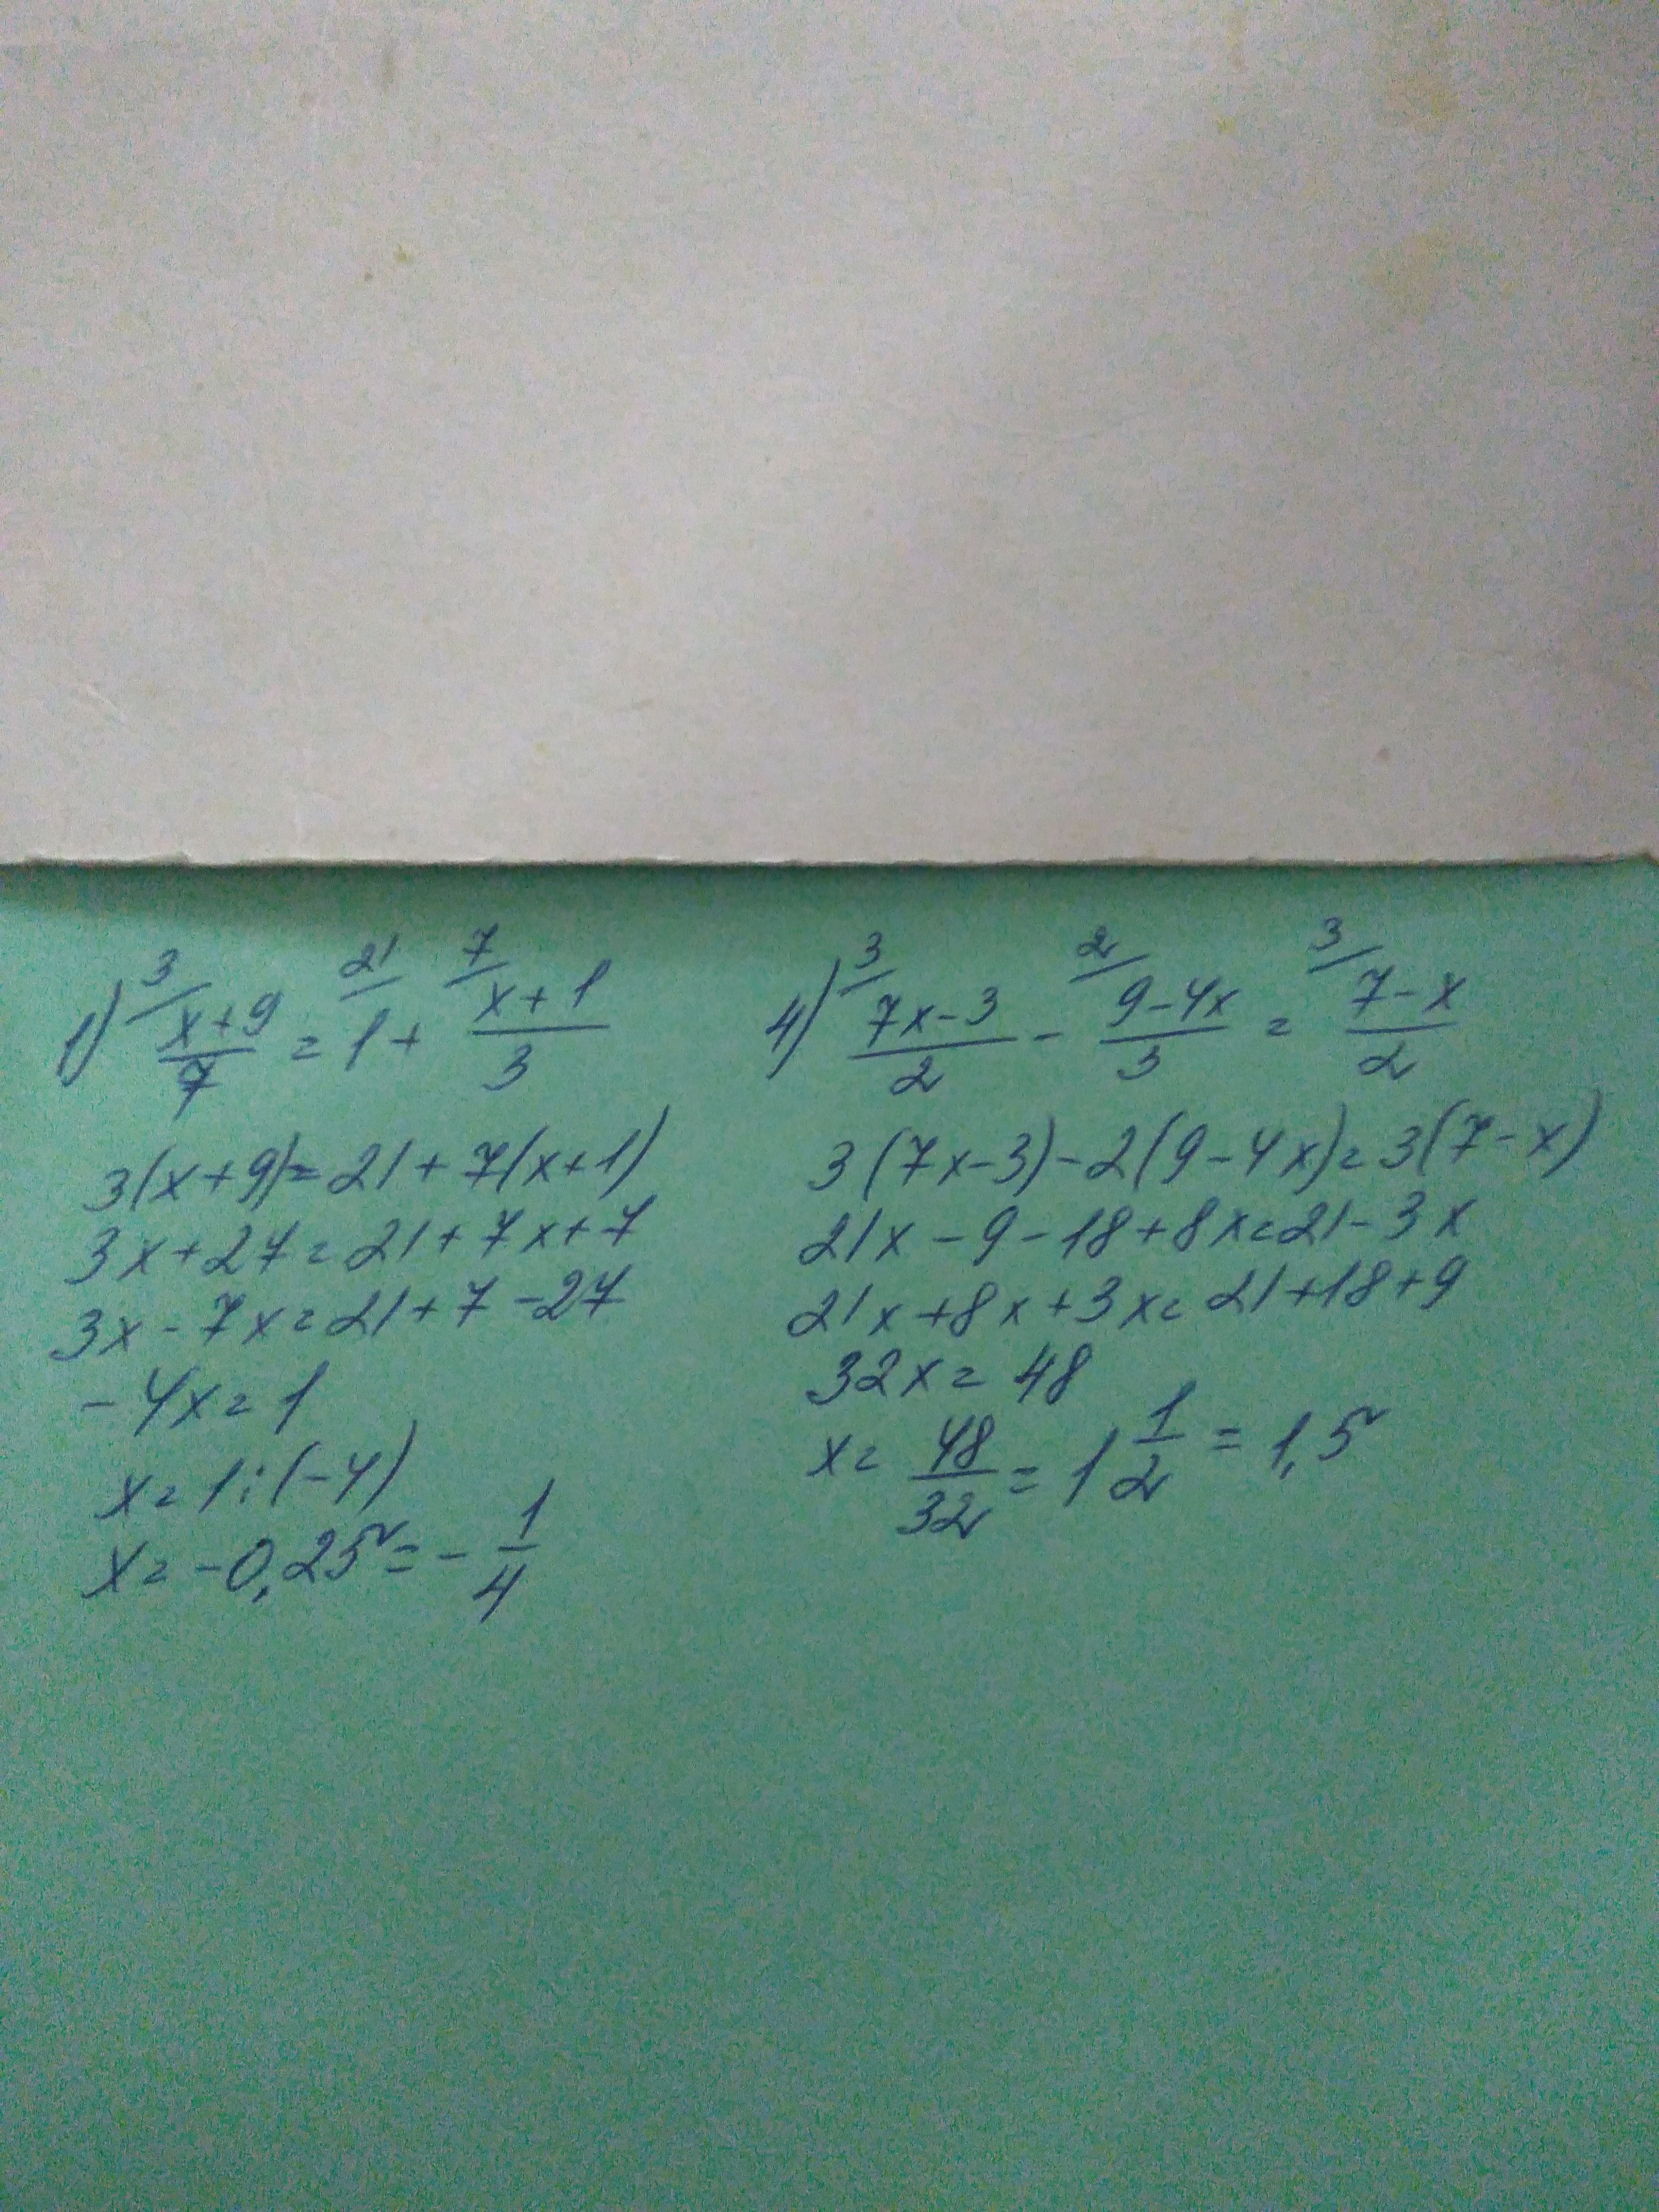 1) 3/ x+9/7 = 21/ 1 + 7/ x+1/3
3(x+9)=21+7(x+1)
3x+27=21+7x+7
3x-7x=21+7-27
-4x=1
x=1:(-4)
x=-0,25=-1/4
4) 3/ 7x-3/2 - 2/ 9-4x/3 = 3/ 7-x/2
3(7x-3)-2(9-4x)=3(7-x)
21x-9-18+8x=21-3x
21x+8x+3x=21+18+9
32x=48
x=48/32=1 1/2=1,5